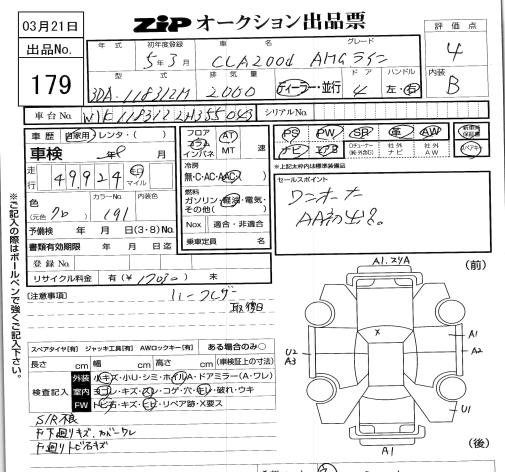 03月21日
ZIP オークション出品票
出品No.
179
評価点
4
内装
B
年式 初年度登録 車名 グレード
5年3月 CLA200d AMGライン
型式 排気量 ディーラー・並行 ドア ハンドル
3DA-118312M 2000 4 左・右
車台No. W1K1183122N355043 シリアルNo.
車歴 自家用・レンタ・( )
車検 年 月
走行 49,924 キロ マイル
色 (元色 クロ) カラーNo. 191 内装色
予備検 年 月 日(3・8)No.
書類有効期限 年 月 日迄
登録No.
リサイクル料金 有(¥ ) 未
フロア コラム インパネ AT MT 速
冷房
無・C・AC・AAC
燃料
ガソリン・軽油・電気・その他( )
Nox 適合・非適合
乗車定員 名
PS PW SR 革 AW
ナビ エアB
社外ナビ 社外AW
新車時保証書
※上記太枠内は標準装備品
セールスポイント
ワンオーナー
AA初出品。
注意事項
取後日
スペアタイヤ[有] ジャッキ工具[有] AWロックキー[有] ある場合のみ○
長さ cm 幅 cm 高さ cm (車検証上の寸法)
検査記入
外装 小キズ・小U・シミ・ホイルA・ドアミラー(A・ワレ)
室内 ヨゴレ・キズ・スレ・コゲ・穴・キレ・破れ・ウキ
FW トビ石・キズ・ヒビ・リペア跡・X要ス
S/R不良
下廻りキズ、カバーワレ
下廻りトビ石キズ
※ご記入の際はボールペンで強くご記入下さい。
(前)
A1.スリA
X
A1
A2
U2
A3
U1
A1
(後)